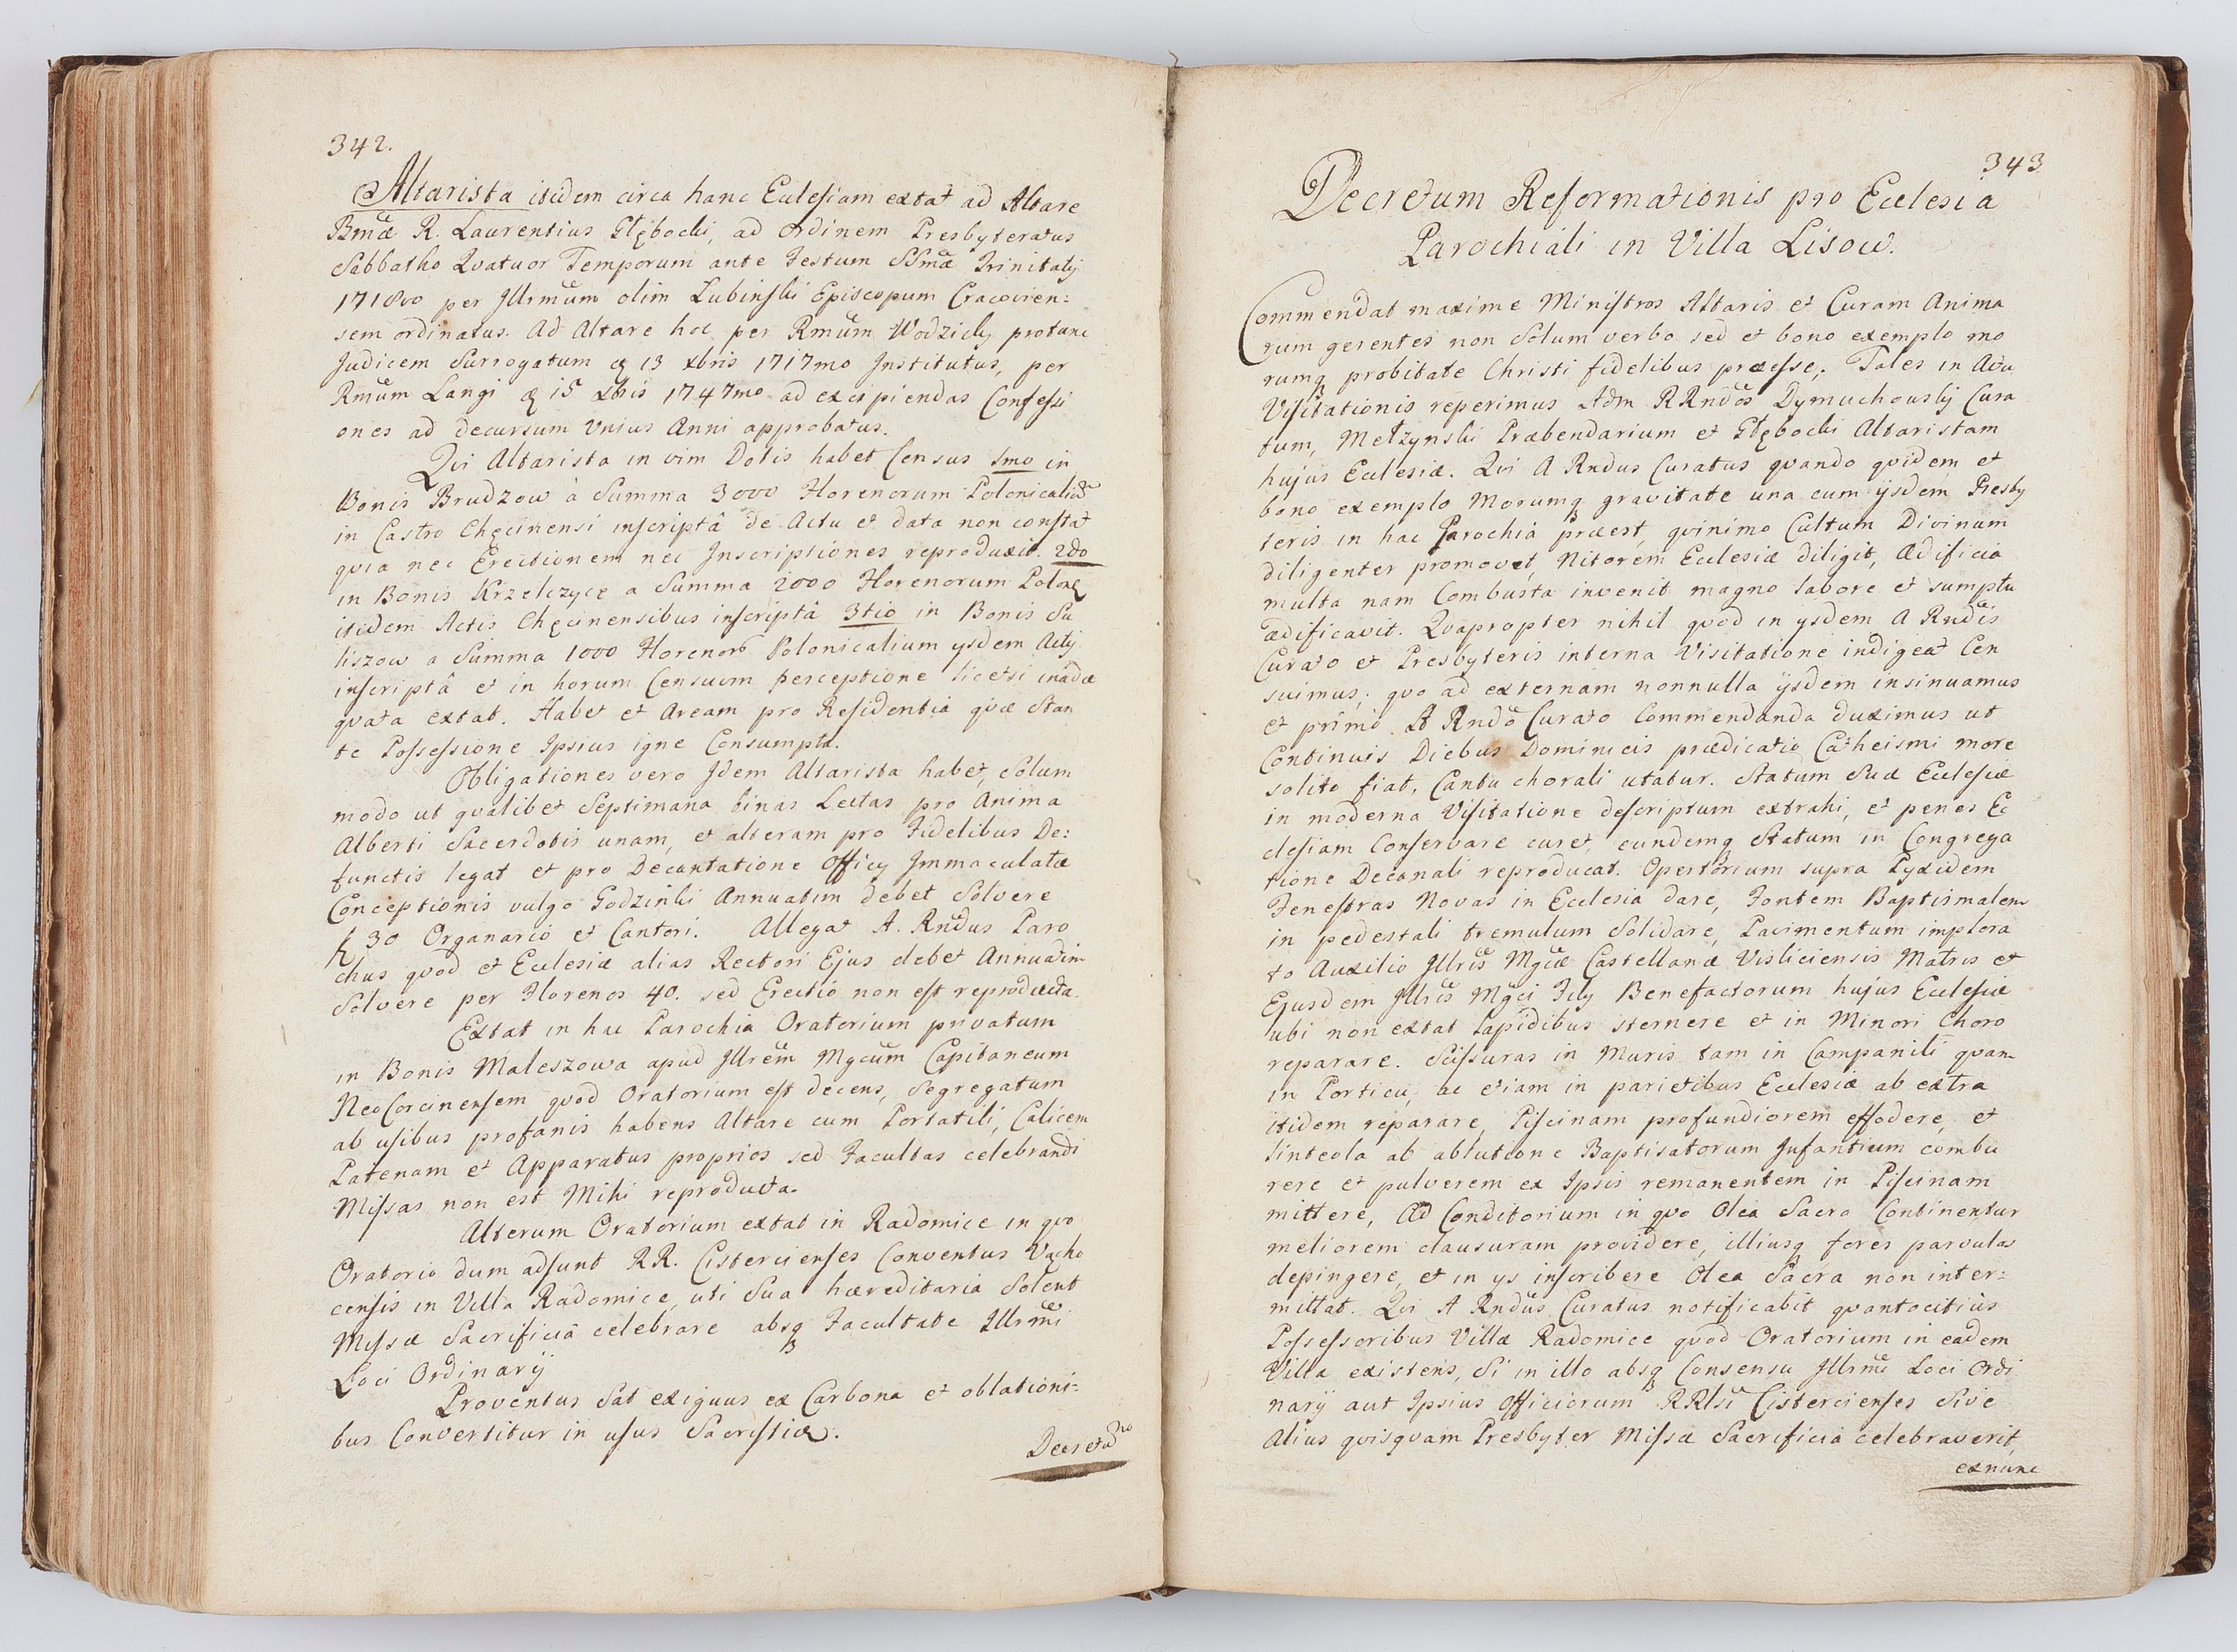 342.
Altarista itidem circa hanc Ecclesiam extat ad Altare
Bmæ R. Laurentius Głębocki, ad ordinem Presbyteratus
Sabbatho Qvatuor Temporum ante Festum SSmæ Trinitatis
1718vo per Illrmum olim Łubinski Episcopum Cracovien:
sem ordinatus. Ad Altare hoc per Rmum Wodzicky protunc
Judicem Surrogatum 13 xbris 1717mo Institutus, per
Rmum Langi 15 xbris 1747mo ad excipiendas Confessi
ones ad decursum Vnius Anni approbatus.
Qvi Altarista in vim Dotis habet Census 1mo in
Bonis Brudzow à Summa 3000 Florenorum Polonicaliū
in Castro Chęcinensi inscriptâ de Actu et data non constat
qvia nec Erectionem nec Inscriptiones reproduxit. 2do
in Bonis Krzelczyce a Summa 2000 Florenorum Polon
itidem Actis Chęcinensibus inscriptâ 3tio in Bonis Su
liszow a Summa 1000 Florenor Polonicalium ysdem Actis
inscriptâ et in horum Censuum perceptione licetsi inadæ
qvata extat. Habet et Aream pro Residentia qvæ Stan
te Possessione Ipsius igne Consumpta.
Obligationes vero Idem Altarista habet, Solum
modo ut qvalibet Septimana binas Lectas pro Anima
Alberti Sacerdotis unam, et alteram pro Fidelibus De:
functis legat et pro Decantatione Officy Immaculatæ
Conceptionis vulgo Godzinki Annuatim debet Solvere
f 30 Organario et Cantori. Allegat A. Rndus Paro
chus qvod et Ecclesiæ alias Rectori Ejus debet Annuatim
Solvere per Florenos 40. sed Erectio non est reproducta.
Extat in hac Parochia Oratorium privatum
in Bonis Maleszowa apud Illrem Mgcum Capitaneum
NeoCorcinensem qvod Oratorium est decens, Segregatum
ab usibus profanis habens Altare cum Portatili, Calicem
Patenam et Apparatus proprios sed Facultas celebrandi
Missas non est Mihi reproducta.
Alterum Oratorium extat in Radomice in qvo
Oratorio dum adsunt RR. Cistercienses Conventus Vacho
censis in Villa Radomice, uti Sua hæreditaria Solent
Missæ Sacrificia celebrare absq Facultate Illrmi
Loci Ordinarij
Proventus Sat exiguus ex Carbona et oblationi:
bus Convertitur in usus Sacristiæ.
Decretu
343
Decretum Reformationis pro Ecclesia
Parochiali in Villa Lisow.
Commendat maxime Ministros Altaris et Curam Anima
rum gerentes non Solum verbo sed et bono exemplo mo
rumq probitate Christi fidelibus præesse; Tales in Actu
Visitationis reperimus Adm RRndos Dymuchowsky Cura
tum, Mełzynski Præbendarium et Głębocki Altaristam
hujus Ecclesiæ. Qvi A Rndus Curatus qvando qvidem et
bono exemplo Morumq gravitate una cum ysdem Presby
teris in hac Parochia præest, qvinimo Cultum Divinum
diligenter promovet, Nitorem Ecclesiæ diligit, Ædificia
multa nam Combusta invenit magno labore et sumptu
ædificavit. Qvapropter nihil qvod in ysdem A Rndis
Curato et Presbyteris interna Visitatione indigeat Cen
suimus; quo ad externam nonnulla ysdem insinuamus
et primò A Rndo Curato Commendanda duximus ut
Continuis Diebus Dominicis prædicatio Catheismi more
solito fiat, Cantu chorali utatur. Statum Suæ Ecclesiæ
in moderna Visitatione descriptum extrahi, et penes Ec
clesiam Conservare curet, eundemq Statum in Congrega
tione Decanali reproducat. Opertorium supra Pyxidem
Fenestras Novas in Ecclesia dare, Fontem Baptismalem
in pedestali tremulum Solidare, Pavimentum implora
to Auxilio Illris Mgcæ Castellanæ Visliciensis Matris et
Ejusdem Illris Mgci Fily Benefactorum hujus Ecclesiæ
ubi non extat Lapidibus sternere et in Minori Choro
reparare. Scissuras in Muris tam in Campanili qvam
in Porticu, ac etiam in parietibus Ecclesiæ ab extra
itidem reparare, Piscinam profundiorem effodere, et
linteola ab ablutione Baptisatorum Infantium combu
rere et pulverem ex Ipsis remanentem in Piscinam
mittere, Ad Conditorium in qvo Olea Sacra Continentur
meliorem clausuram providere, illiusq fores parvulas
depingere, et in ys inscribere Olea Sacra non inter:
mittat. Qvi A Rndus Curatus notificabit qvantocitiùs
Possessoribus Villæ Radomice qvod Oratorium in eadem
Villa existens, Si in illo absq Consensu Illrmi Loci Ordi
narij aut Ipsius Officiorum Cistercienses Sive
Alius qvisqvam Presbyter Missæ Sacrificia celebraverit,
exnunc